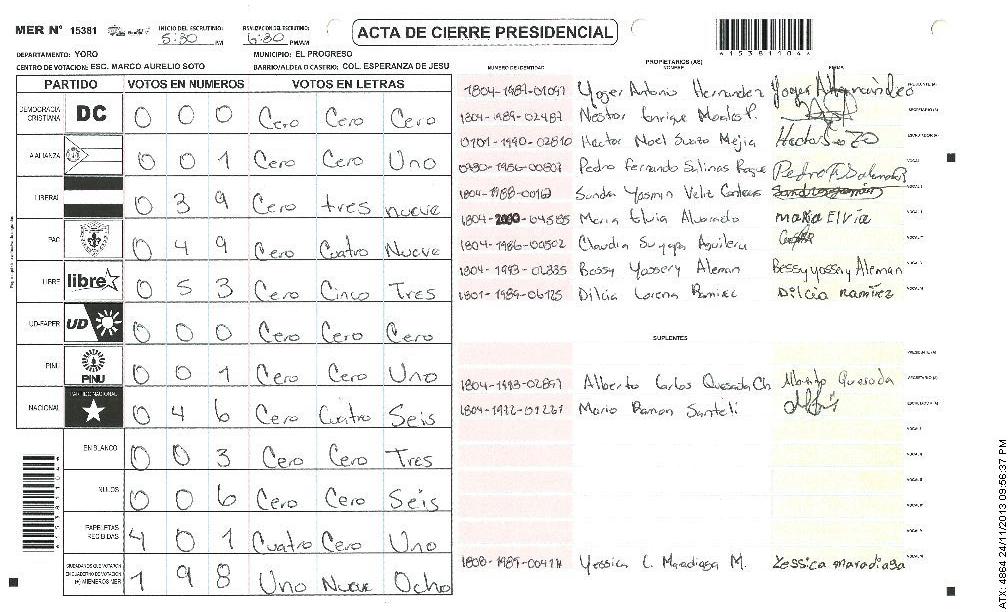 MER Nº 15381 INICIO DEL ESCRUTINIO: 5:30 PM FINALIZACION DEL ESCRUTINIO: 6:30 PM/AM
ACTA DE CIERRE PRESIDENCIAL
DEPARTAMENTO: YORO MUNICIPIO: EL PROGRESO
CENTRO DE VOTACION: ESC. MARCO AURELIO SOTO BARRIO/ALDEA O CASERIO: COL. ESPERANZA DE JESU
PARTIDO VOTOS EN NUMEROS VOTOS EN LETRAS
DEMOCRACIA CRISTIANA DC 0 0 0 Cero Cero Cero
ALIANZA 0 0 1 Cero Cero Uno
LIBERAL 0 3 9 Cero tres nueve
PAC 0 4 9 Cero Cuatro Nueve
LIBRE libre 0 5 3 Cero Cinco Tres
UD-FAPER UD 0 0 0 Cero Cero Cero
PINU PINU 0 0 1 Cero Cero Uno
NACIONAL PARTIDO NACIONAL 0 4 6 Cero Cuatro Seis
EN BLANCO 0 0 3 Cero Cero Tres
NULOS 0 0 6 Cero Cero Seis
PAPELETAS RECIBIDAS 4 0 1 Cuatro Cero Uno
CIUDADANOS QUE VOTARON EN CUADERNO DE VOTACION (+) MIEMBROS MER 1 9 8 Uno Nueve Ocho
PROPIETARIOS (AS)
NUMERO DE IDENTIDAD NOMBRE FIRMA
Yoger Antonio Hernandez
1804-1989-02487 Nestor Enrique
0101-1990-02810 Hector Noel Suazo Mejia
Pedro Fernando Salinas
Yasmin Veliz
Maria Elvia Alvarado Maria Elvia
1804-1986-00502 Claudia Suyapa Aguilera
1804-1993-02335 Bessy Yossery Aleman Bessy yossery Aleman
1801-1989-06125 Dilcia Lorena Ramirez Dilcia Ramirez
SUPLENTES
1804-1993-02897 Alberto Carlos Quesada Ch Quesada
Mario Ramon Santeli
Yessica L. Maradiaga M. Yessica maradiaga
ATX: 4864 24/11/2013 09:56:37 PM